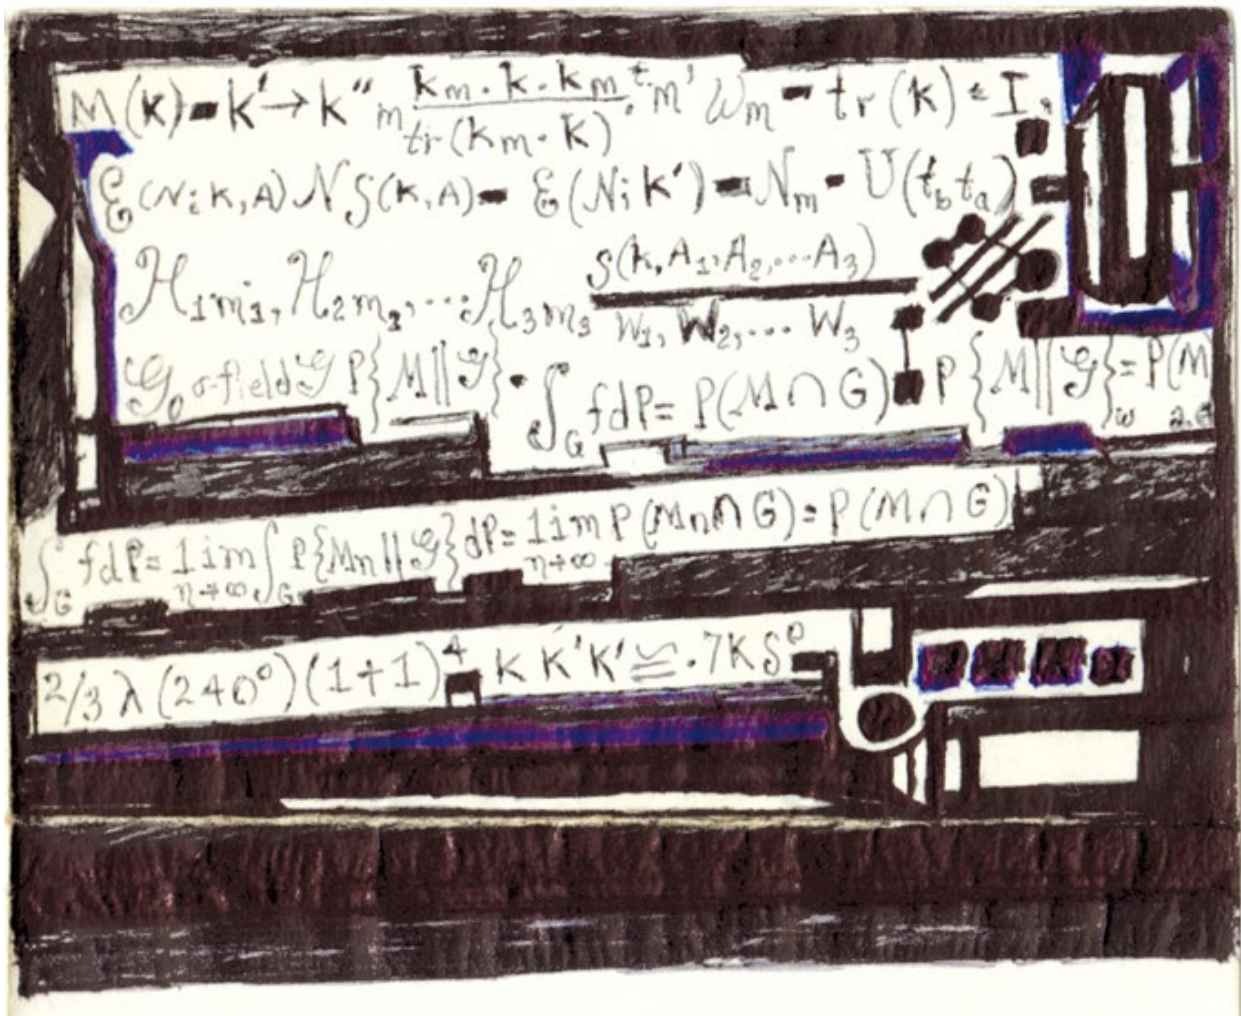 M(K) = K' → K'' m (K_m · K · K_m)/(tr(K_m · K)) t. m' ω_m = tr(K) = I.
ℰ(N; K, A) N S(K, A) = ℰ(N; K') = N_m = U(t_b t_a)
ℋ_1m_1, ℋ_2m_2, ... ℋ_3m_3 S(K, A_1, A_2, ... A_3)/W_1, W_2, ... W_3
𝒢_0 σ-field 𝒢 P{M||𝒢} · ∫_G fdP = P(M ∩ G) P{M||𝒢}_ω = P(M
∫_G fdP = lim_{n→∞} ∫_G P{Mn||𝒢}dP = lim_{n→∞} P(Mn ∩ G) = P(M ∩ G)
2/3 λ (240°)(1+1)^4 = K K' K' ≌ .7K S^e